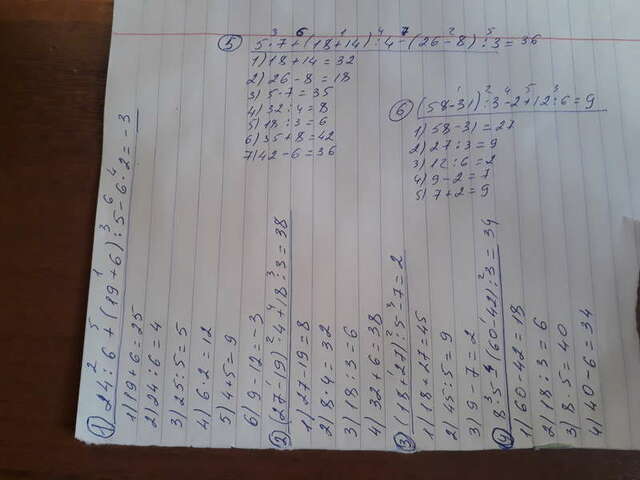 2 5 1 3 6 4
1 24:6+(19+6):5-6·2=-3
1) 19+6=25
2) 24:6=4
3) 25:5=5
4) 6·2=12
5) 4+5=9
6) 9-12=-3
1 2 4 3
2 (27-19)·4+18:3=38
1) 27-19=8
2) 8·4=32
3) 18:3=6
4) 32+6=38
1 2 3
3 (18+27):5-7=2
1) 18+27=45
2) 45:5=9
3) 9-7=2
3 4 1 2
4 8·5-(60-42):3=34
1) 60-42=18
2) 18:3=6
3) 8·5=40
4) 40-6=34
3 6 1 4 7 2 5
5 5·7+(18+4):4-(26-8):3=36
1) 18+4=32
2) 26-8=18
3) 5·7=35
4) 32:4=8
5) 18:3=6
6) 35+8=42
7) 42-6=36
1 2 4 5 3
6 (58-31):3-2+12:6=9
1) 58-31=27
2) 27:3=9
3) 12:6=2
4) 9-2=7
5) 7+2=9